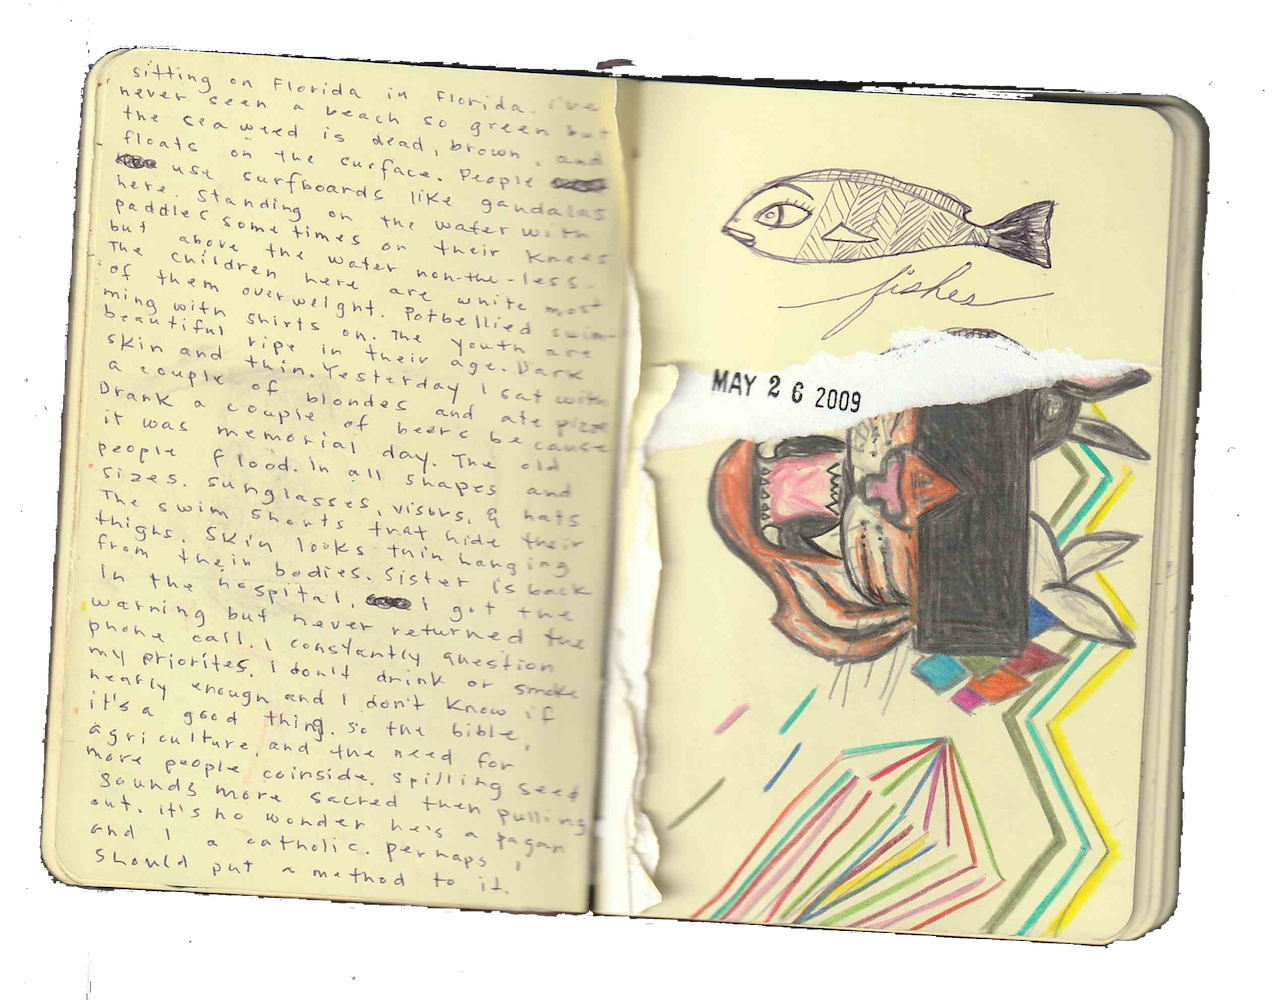 sitting on Florida in Florida. i've
never seen a beach so green but
the seaweed is dead, brown, and
floats on the surface. People
use surfboards like gandalas
here. Standing on the water with
paddles sometimes on their knees
but above the water non-the-less.
The children here are white most
of them overweight. Potbellied swim-
ming with shirts on. The youth are
beautiful ripe in their age. Dark
skin and thin. Yesterday I sat with
a couple of blondes and ate pizza
Drank a couple of beers because
it was memorial day. The old
people flood. In all shapes and
sizes. Sunglasses, visors, & hats.
The swim shorts that hide their
thighs. Skin looks thin hanging
from their bodies. Sister is back
In the hospital, I got the
warning but never returned the
phone call. I constantly question
my priorites. I don't drink or smoke
nearly enough and I don't know if
it's a good thing. So the bible,
agriculture, and the need for
more people coinside. Spilling seed
sounds more sacred then pulling
out. it's no wonder he's a pagan
and I a catholic. perhaps I
should put a method to it.
fishes
MAY 26 2009